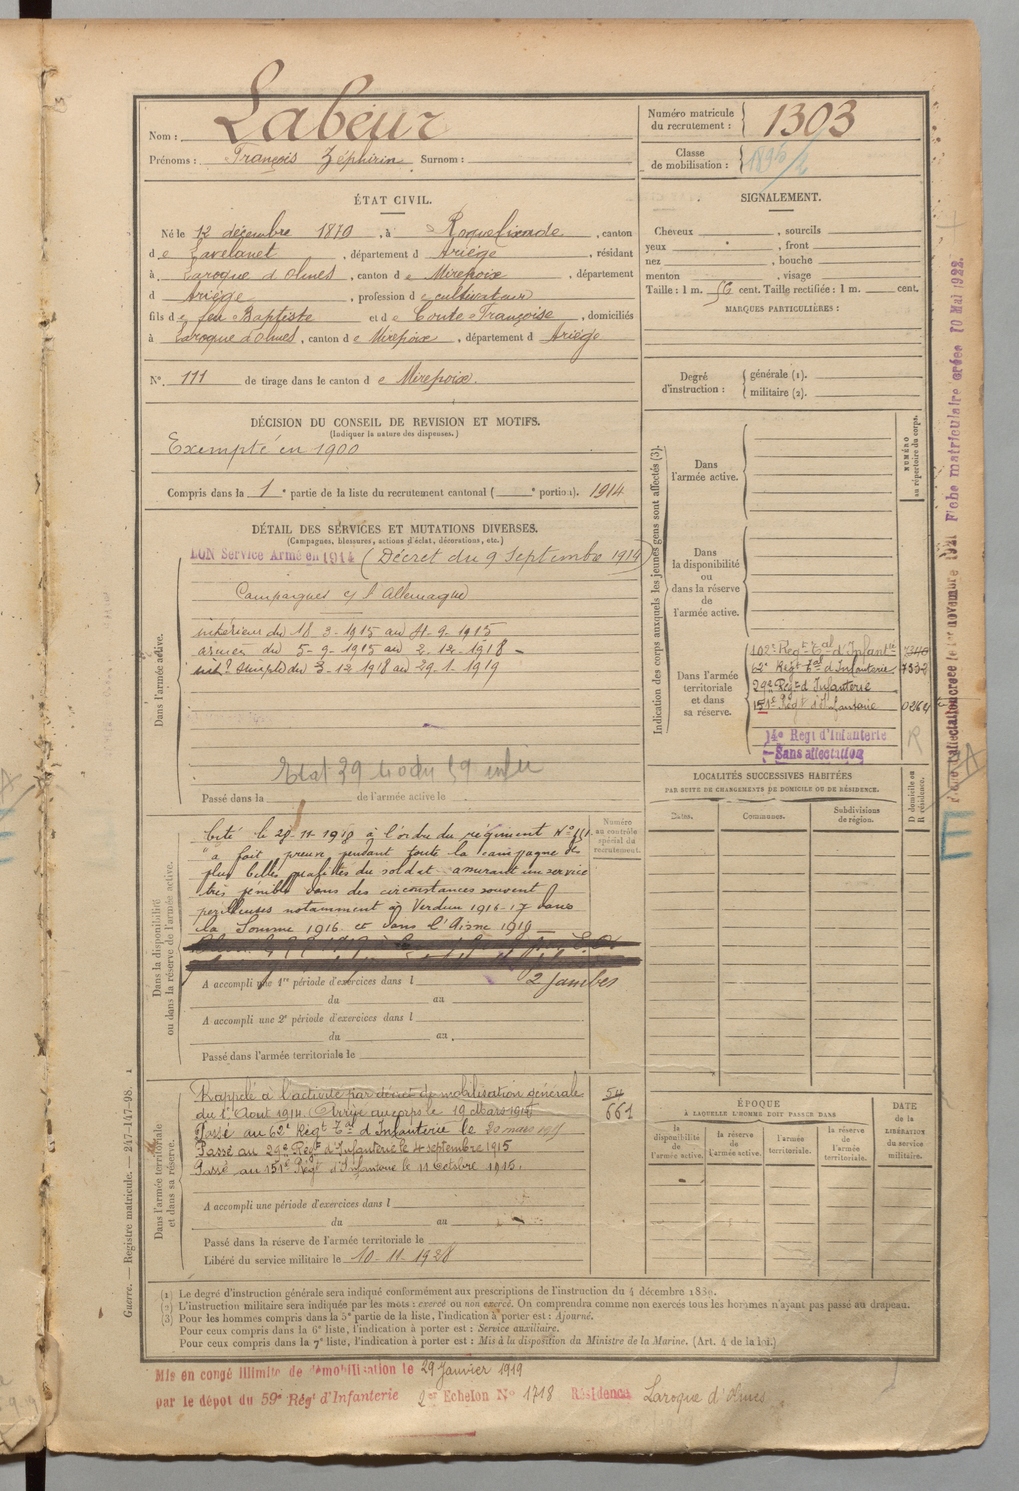 Nom : Labeur
Prénoms : François Zéphirin Surnom :
Numéro matricule du recrutement : 1303
Classe de mobilisation :
ÉTAT CIVIL.
Né le 12 décembre 1870, à Roquefixade, canton
de Lavelanet, département d Ariège, résidant
à Laroque d'Olmes, canton de Mirepoix, département
d Ariège, profession de cultivateur
fils de feu Baptiste et de Coute Françoise, domiciliés
à Laroque d'Olmes, canton de Mirepoix, département d Ariège
N° 111 de tirage dans le canton de Mirepoix.
SIGNALEMENT.
Cheveux , sourcils
yeux , front
nez , bouche
menton , visage
Taille : 1 m. 56 cent. Taille rectifiée : 1 m. cent.
MARQUES PARTICULIÈRES :
Degré d'instruction : générale (1).
militaire (2).
DÉCISION DU CONSEIL DE REVISION ET MOTIFS.
(Indiquer la nature des dispenses.)
Exempté en 1900
Compris dans la 1e partie de la liste du recrutement cantonal ( e portion). 1914
DÉTAIL DES SERVICES ET MUTATIONS DIVERSES.
(Campagnes, blessures, actions d'éclat, décorations, etc.)
Dans l'armée active.
BON Service Armé en 1914 (Décret du 9 Septembre 1914)
Campagnes c/ l'Allemagne
intérieur du 18-3-1915 au
armées du 5-9-1915 au 2-12-1918
simple du 3-12-1918 au 29-1-1919
Passé dans la de l'armée active le
Dans la disponibilité ou dans la réserve de l'armée active.
Numéro au contrôle spécial du recrutement.
Cité le 28-11-1918 à l'ordre du régiment N°
"a fait preuve pendant toute la campagne des
plus belles qualités du soldat assurant un service
très pénible dans des circonstances souvent
périlleuses notamment à Verdun 1916-17 dans
la Somme 1916 et dans l'Aisne 1918
2 jambes
A accompli une 1re période d'exercices dans l
du au
A accompli une 2e période d'exercices dans l
du au
Passé dans l'armée territoriale le
Dans l'armée territoriale et dans sa réserve.
Rappelé à l'activité par décret de mobilisation générale
du 1er Août 1914. Arrivé au corps le 19 Mars 1915
Passé au 62e Régt Tal d'Infanterie le 20 mars 1915
Passé au 29e Régt d'Infanterie le 4 septembre 1915
Passé au 151e Régt d'Infanterie le 11 Octobre 1915.
54
661
A accompli une période d'exercices dans l
du au
Passé dans la réserve de l'armée territoriale le
Libéré du service militaire le 10-11-1928
Indication des corps auxquels les jeunes gens sont affectés (3).
NUMÉRO au répertoire du corps.
Dans l'armée active.
Dans la disponibilité ou dans la réserve de l'armée active.
Dans l'armée territoriale et dans sa réserve.
102e Régt Tal d'Infantie
62e Régt Tal d'Infanterie. 7532
29e Régt d'Infanterie
151e Régt d'Infanterie
14e Regt d'Infanterie
Sans affectation
R
LOCALITÉS SUCCESSIVES HABITÉES
PAR SUITE DE CHANGEMENTS DE DOMICILE OU DE RÉSIDENCE.
D domicile ou R résidence.
Dates. Communes. Subdivisions de région.
ÉPOQUE
À LAQUELLE L'HOMME DOIT PASSER DANS
DATE de la LIBÉRATION du service militaire.
la disponibilité de l'armée active.
la réserve de l'armée active.
l'armée territoriale.
la réserve de l'armée territoriale.
(1) Le degré d'instruction générale sera indiqué conformément aux prescriptions de l'instruction du 4 décembre 1889.
(2) L'instruction militaire sera indiquée par les mots : exercé ou non exercé. On comprendra comme non exercés tous les hommes n'ayant pas passé au drapeau.
(3) Pour les hommes compris dans la 5e partie de la liste, l'indication à porter est : Ajourné.
Pour ceux compris dans la 6e liste, l'indication à porter est : Service auxiliaire.
Pour ceux compris dans la 7e liste, l'indication à porter est : Mis à la disposition du Ministre de la Marine. (Art. 4 de la loi.)
Mis en congé illimité de démobilisation le 29 Janvier 1919
par le dépot du 59e Régt d'Infanterie 2e Echelon N° 1718 Résidence Laroque d'Olmes
Guerre. — Registre matricule. — 247-147-98.
Fiche matriculaire créée 10 Mai 1922.